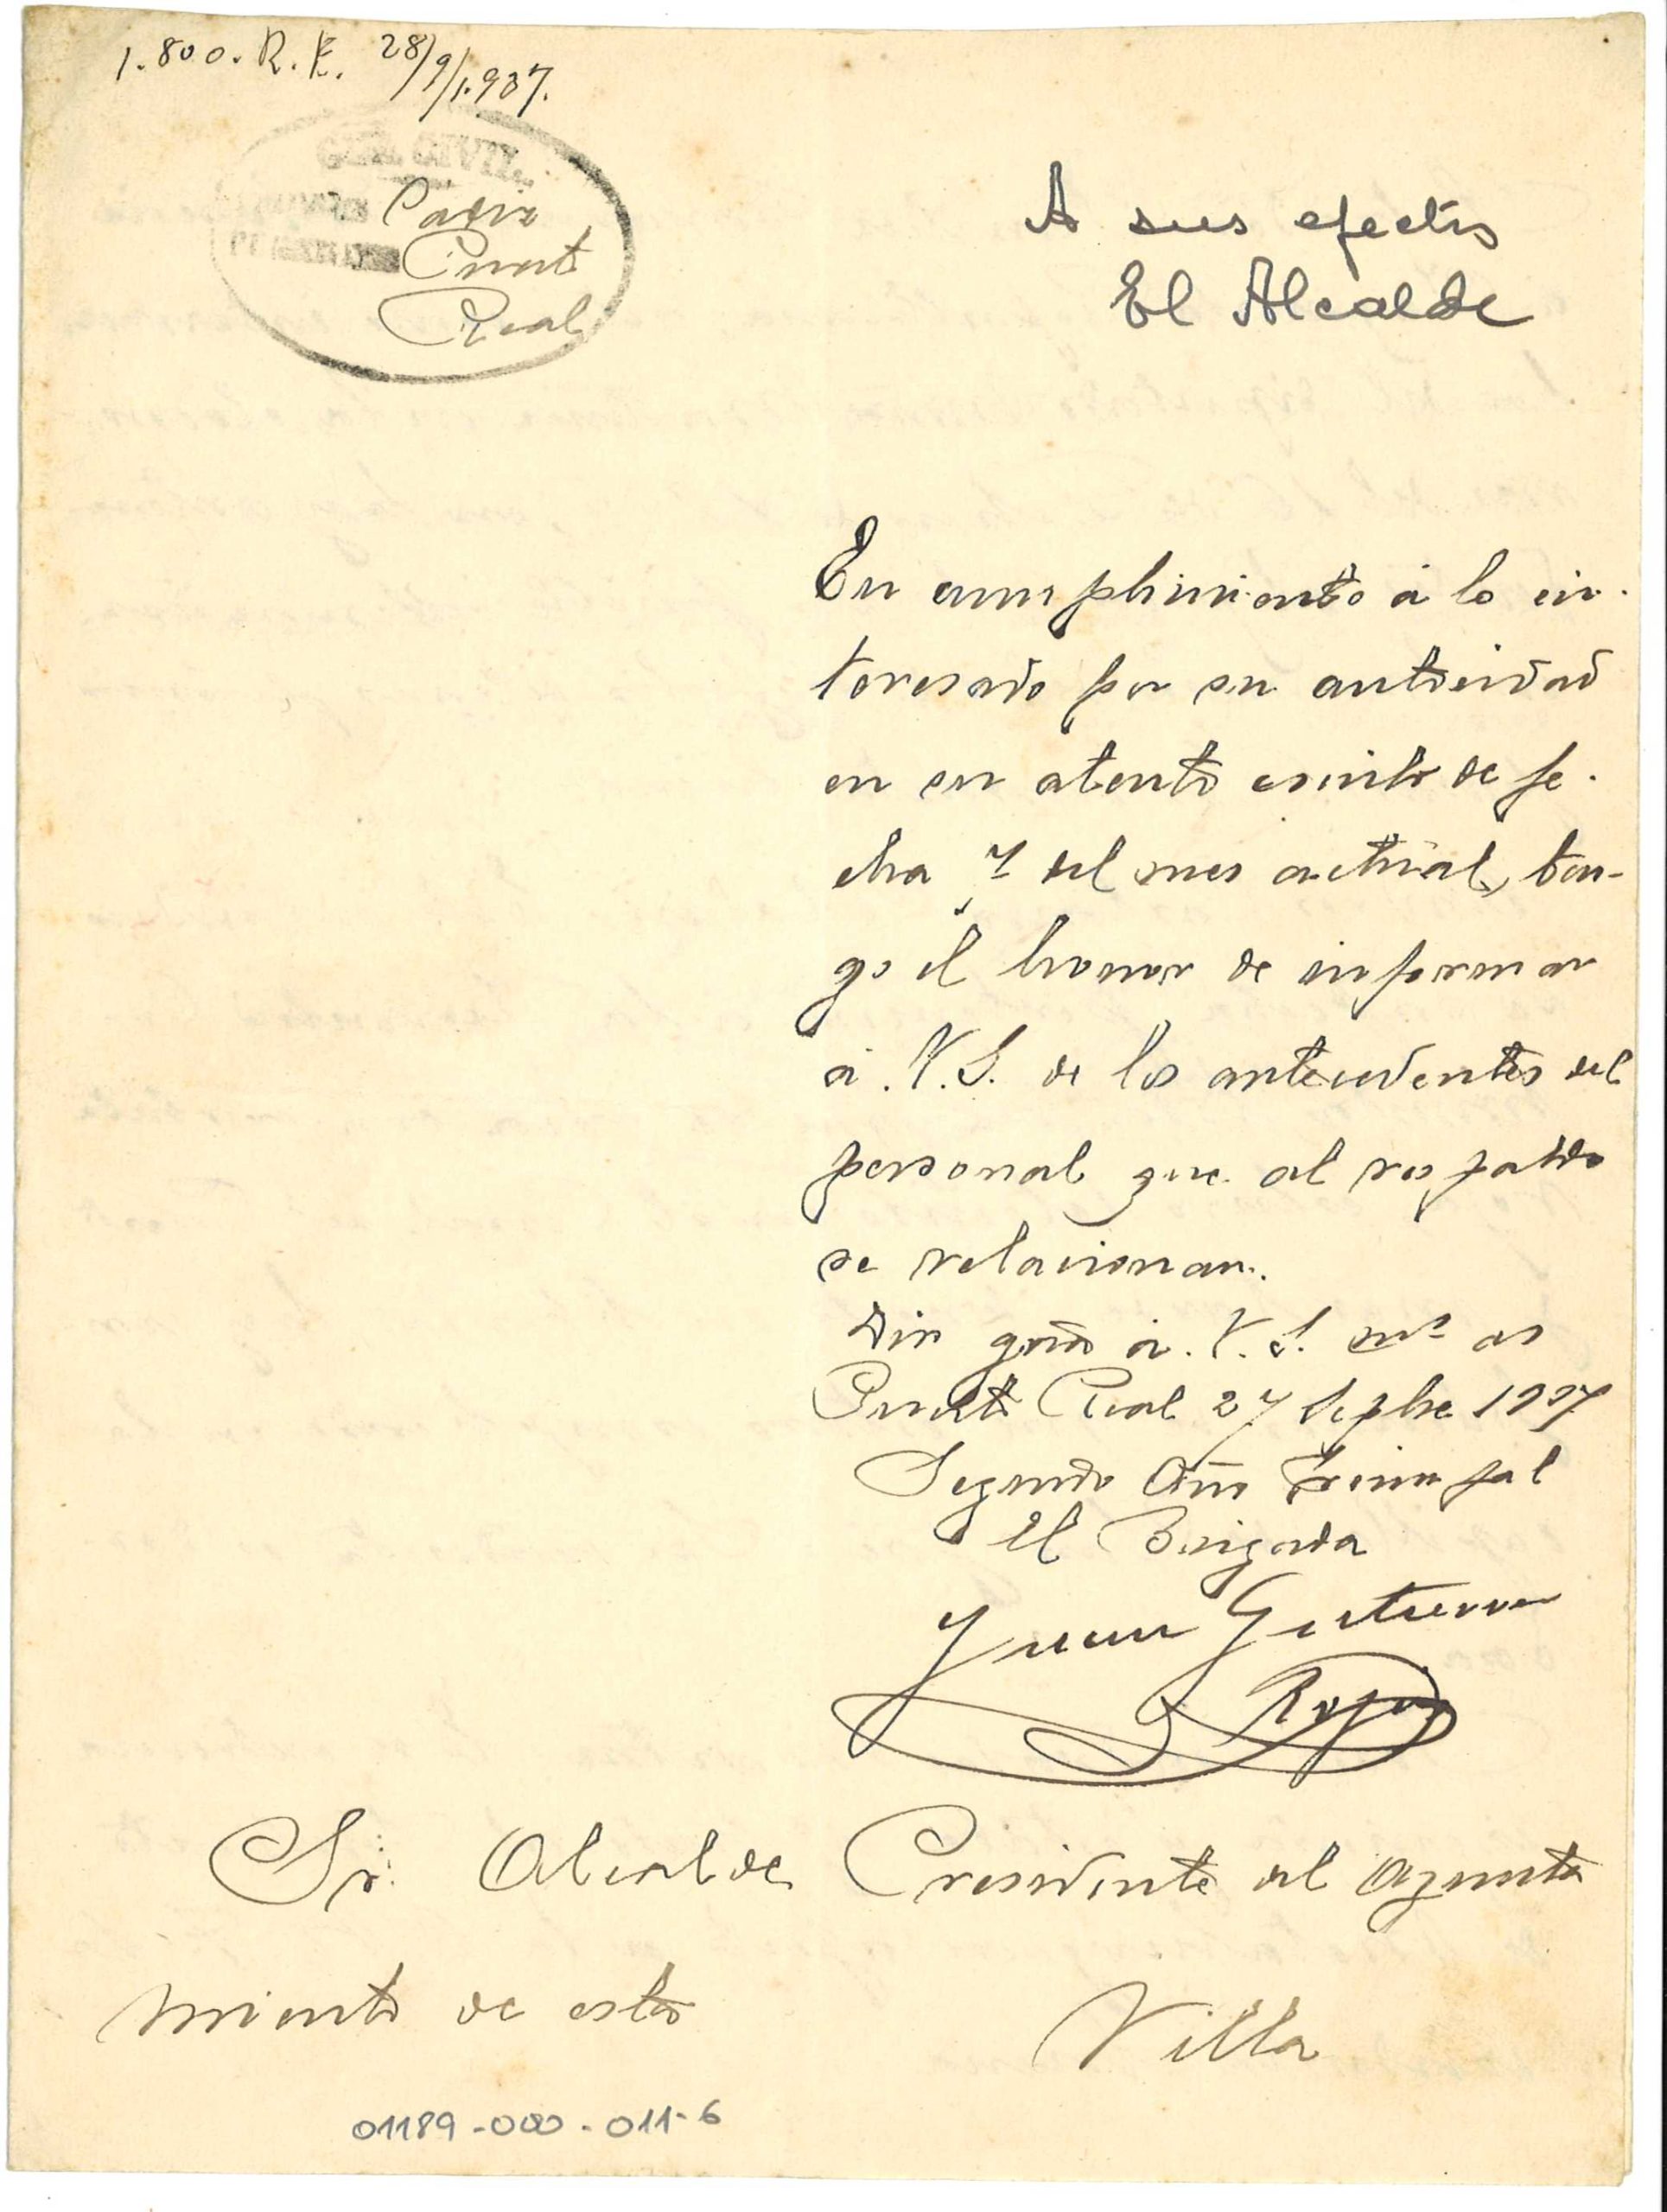 1.800. R. E. 28/9/1.937.
CIVIL
Cadiz
Puerto
Real
A sus efectos
El Alcalde
En cumplimiento á lo in-
teresado por su autoridad
en su atento escrito de fe-
cha 7 del mes actual, ten-
go el honor de informar
á V.S. de los antecedentes del
personal que al respaldo
se relacionan.
Dios gue á V.S. ms as
Puerto Real 27 Septbre 1937
Segundo Año Triunfal
El Brigada
Juan Gutierrez
Rojas
Sr. Alcalde Presidente del Ayunta
miento de esta
Villa
01189-000-011-6